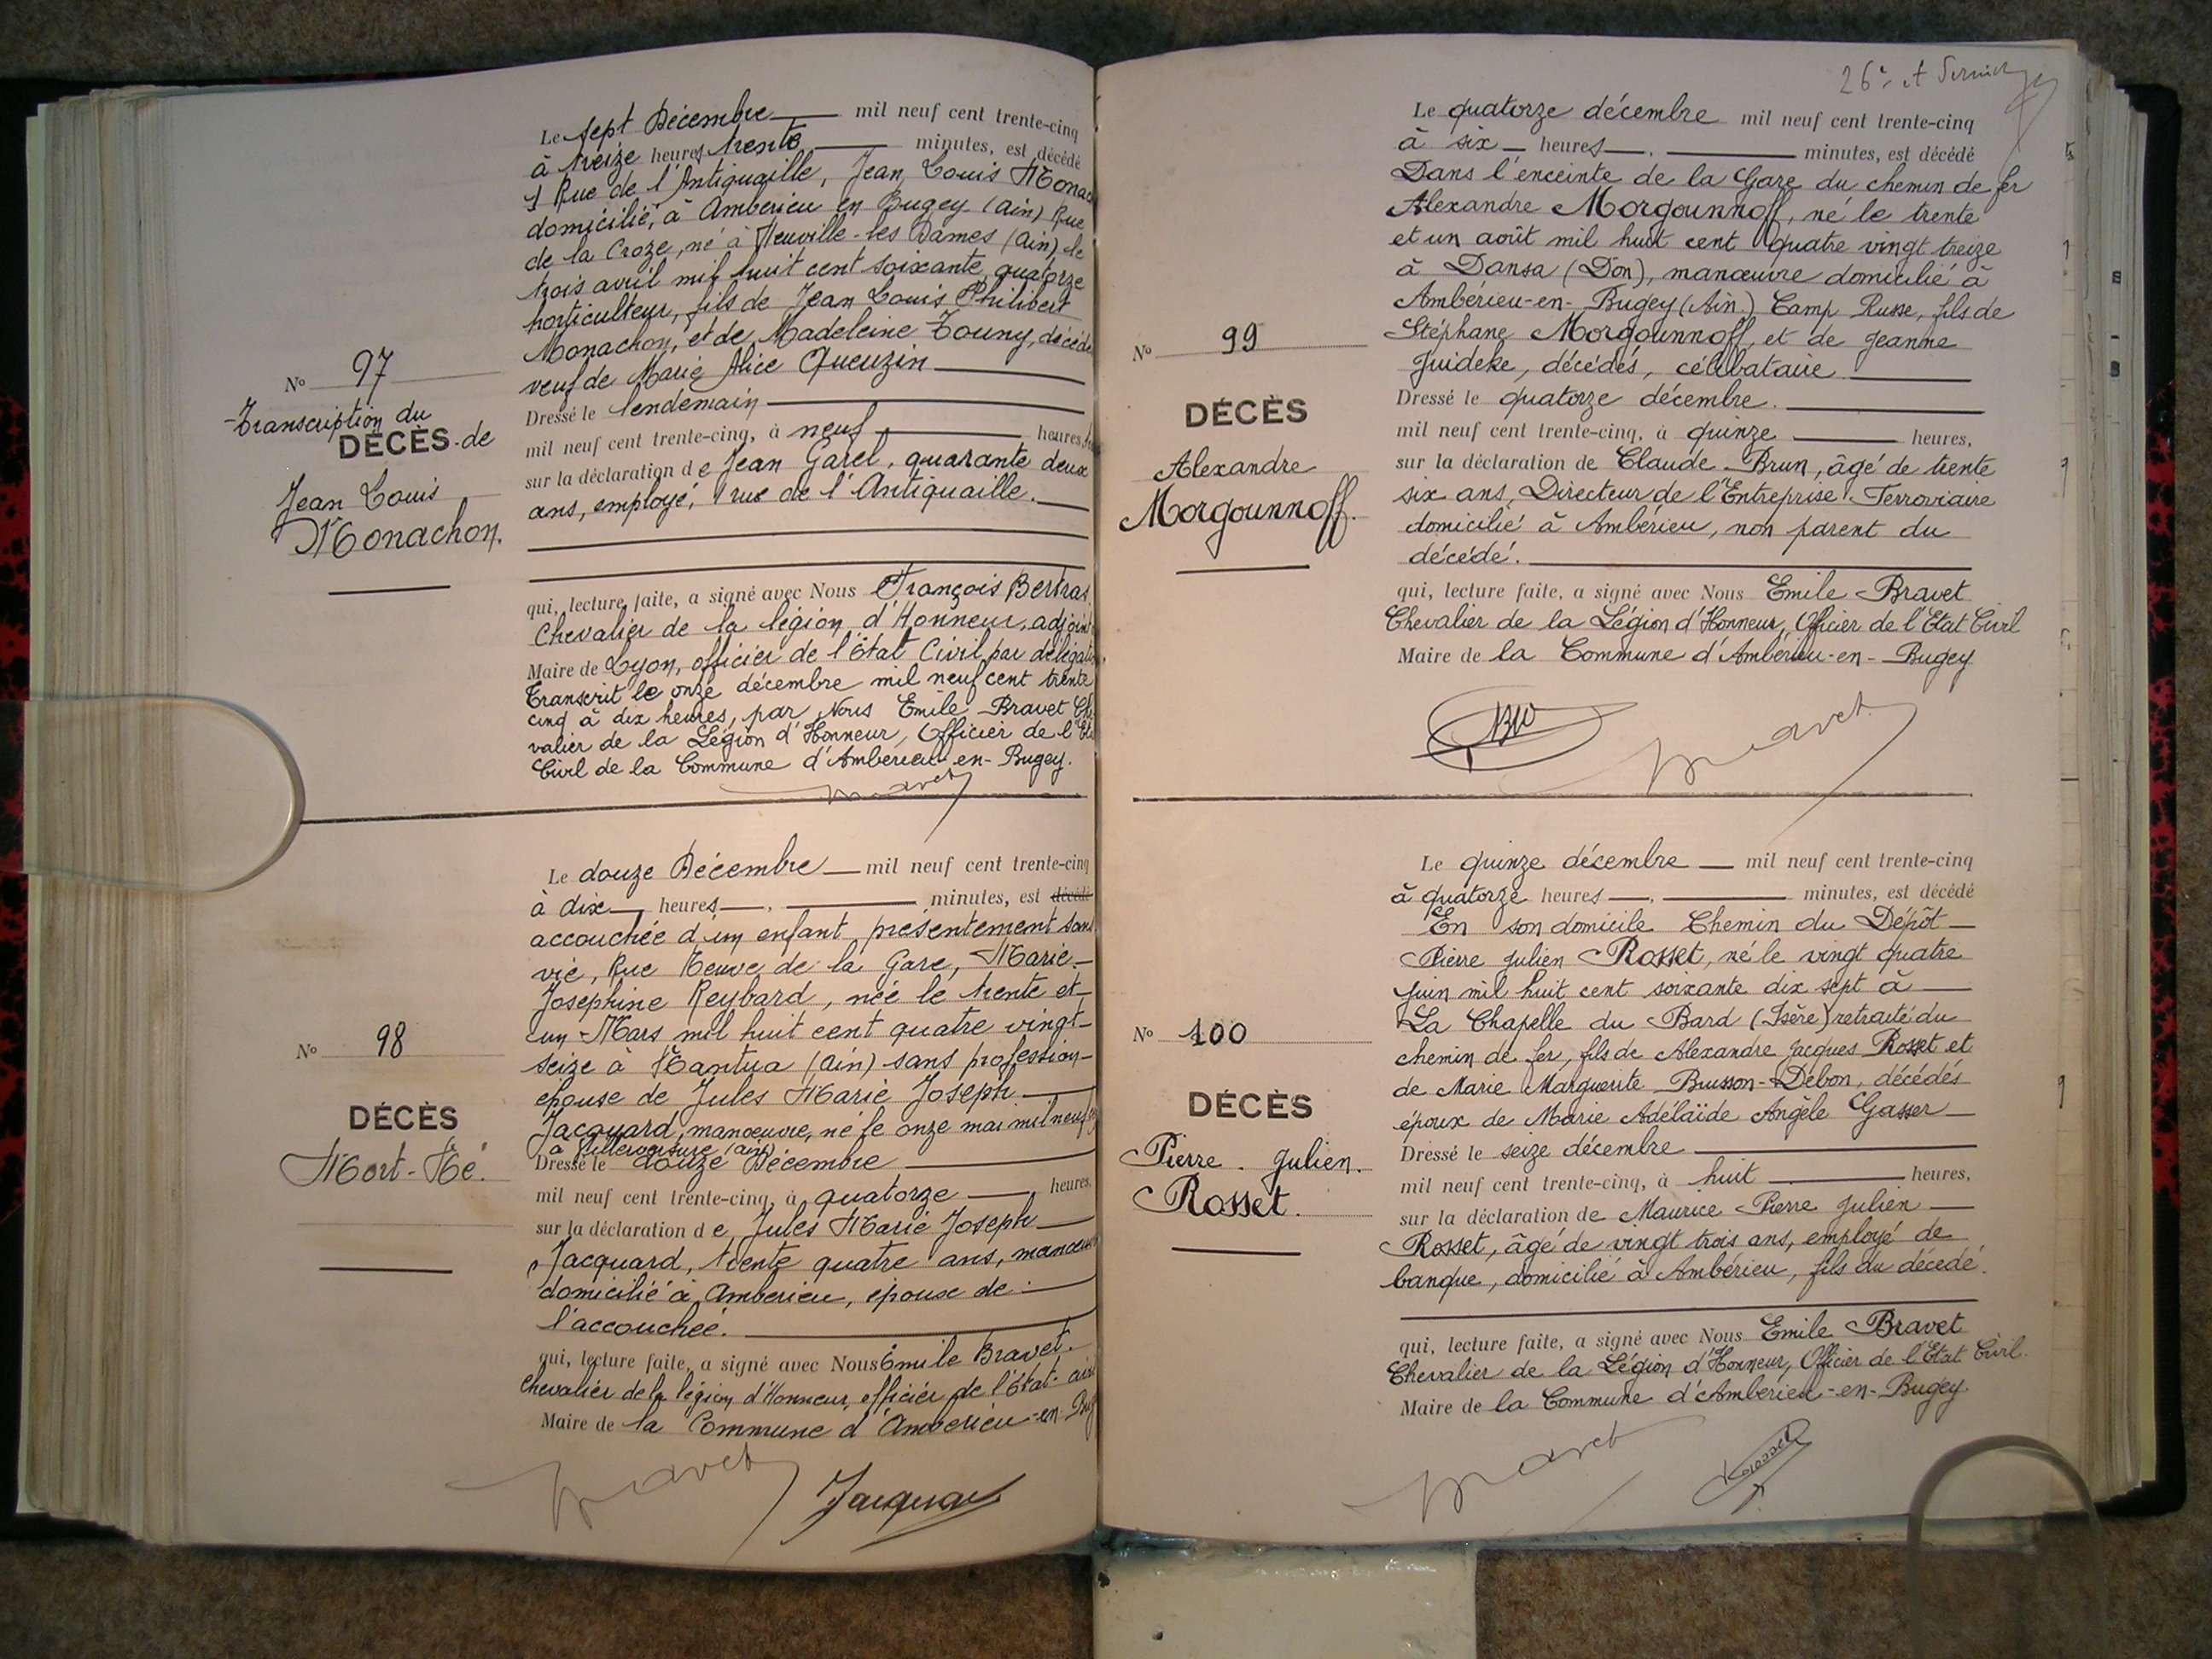 Le sept Décembre mil neuf cent trente-cinq
à treize heures trente minutes, est décédé
1 Rue de l'Antiquaille, Jean Louis Monac
domicilié, à Amberieu en Bugey (Ain) Rue
de la Croze, né à Neuville-les Dames (Ain), le
trois avril mil huit cent soixante quatorze
horticulteur, fils de Jean Louis Philibert
Monachon, et de Madeleine Touny, décédé
veuf de Marie Alice Queuzin
Dressé le lendemain
mil neuf cent trente-cinq, à neuf heures,
sur la déclaration de Jean Garel, quarante deux
ans, employé, 1 rue de l'Antiquaille.
qui, lecture faite, a signé avec Nous François Bertras
Chevalier de la légion d'Honneur, adjoint
Maire de Lyon, officier de l'Etat Civil par délégation
Transcrit le onze décembre mil neuf cent trente
cinq à dix heures, par Nous Emile Bravet Che
valier de la Légion d'Honneur, Officier de l'Eta
Civil de la Commune d'Amberieu-en-Bugey.
Bravet
No 97
Transcription du
DÉCÈS de
Jean Louis
Monachon.
Le douze Décembre mil neuf cent trente-cinq
à dix heures, minutes, est décédé
accouchée d'un enfant présentement sans
vie, Rue Neuve de la Gare, Marie
Josephine Reybard, née le trente et
un Mars mil huit cent quatre vingt
seize à Nantua (Ain) sans profession
épouse de Jules Marie Joseph
Jacquard, manœuvre, né le onze mai mil neuf
à Villereversure (ain)
Dressé le douze Décembre
mil neuf cent trente-cinq, à quatorze heures,
sur la déclaration de Jules Marie Joseph
Jacquard, trente quatre ans, manœuv
domicilié à Amberieu, épouse de
l'accouchée.
qui, lecture faite, a signé avec Nous Emile Bravet.
Chevalier de la légion d'Honneur, officier de l'état civil
Maire de la Commune d'Amberieu-en-Bug
Bravet Jacquard
No 98
DÉCÈS
Mort-Né.
26e et dernier
Le quatorze décembre mil neuf cent trente-cinq
à six heures, minutes, est décédé
Dans l'enceinte de la Gare du chemin de fer
Alexandre Morgounnoff, né le trente
et un août mil huit cent quatre vingt treize
à Dansa (Don), manœuvre domicilié à
Ambérieu-en-Bugey (Ain.) Camp Russe, fils de
Stéphane Morgounnoff, et de Jeanne
Juideke, décédés, célibataire
Dressé le quatorze décembre.
mil neuf cent trente-cinq, à quinze heures,
sur la déclaration de Claude Brun, âgé de trente
six ans, Directeur de l'Entreprise Ferroviaire
domicilié à Ambérieu, non parent du
décédé.
qui, lecture faite, a signé avec Nous Emile Bravet
Chevalier de la Légion d'Honneur, Officier de l'Etat Civil
Maire de la Commune d'Ambérieu-en-Bugey
Bravet
No 99
DÉCÈS
Alexandre
Morgounnoff.
Le quinze décembre mil neuf cent trente-cinq
à quatorze heures, minutes, est décédé
En son domicile Chemin du Dépôt
Pierre Julien Rosset, né le vingt quatre
juin mil huit cent soixante dix sept à
La Chapelle du Bard (Isère) retraité du
chemin de fer, fils de Alexandre Jacques Rosset et
de Marie Marguerite Buisson-Débon, décédés
époux de Marie Adélaïde Angèle Gasser
Dressé le seize décembre
mil neuf cent trente-cinq, à huit heures,
sur la déclaration de Maurice Pierre Julien
Rosset, âgé de vingt trois ans, employé de
banque, domicilié à Ambérieu, fils du décédé.
qui, lecture faite, a signé avec Nous Emile Bravet
Chevalier de la Légion d'Honneur, Officier de l'Etat Civil.
Maire de la Commune d'Ambérieu-en-Bugey
Bravet Rosset
No 100
DÉCÈS
Pierre. Julien.
Rosset.